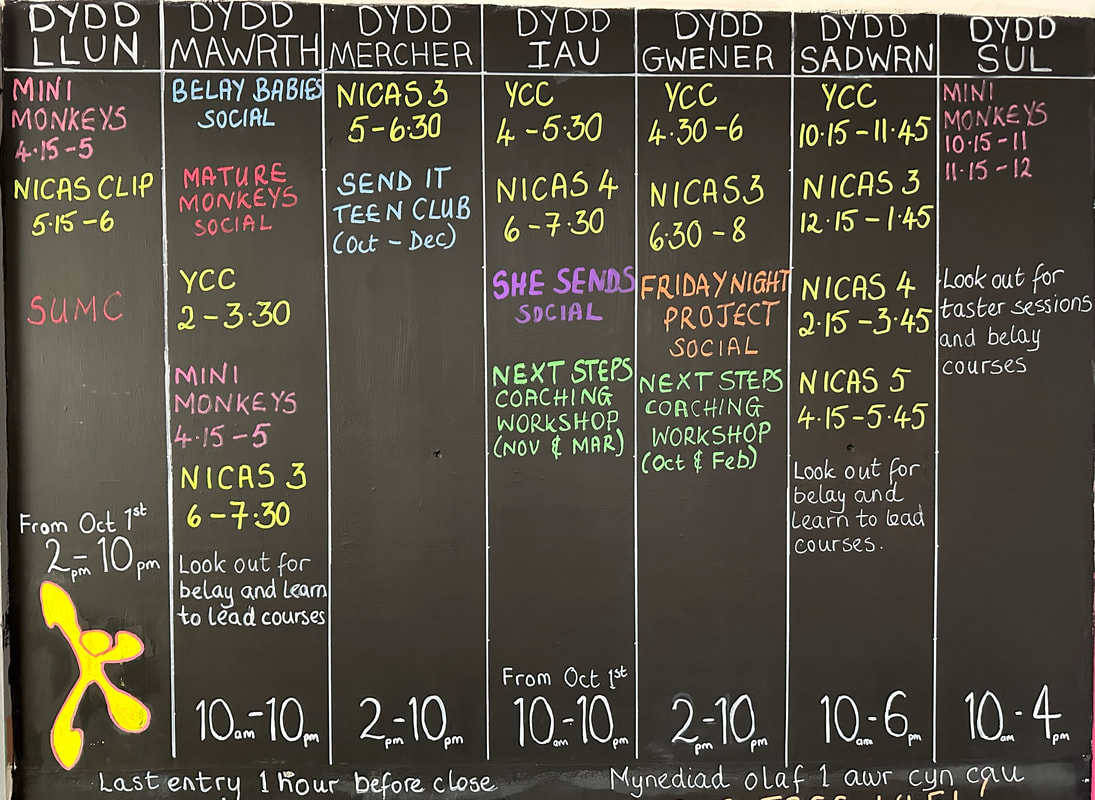 DYDD
LLUN
MINI
MONKEYS
4.15-5
NICAS CLIP
5.15-6
SUMC
From Oct 1st
2pm-10pm
DYDD
MAWRTH
BELAY BABIES
SOCIAL
MATURE
MONKEYS
SOCIAL
YCC
2-3.30
MINI
MONKEYS
4.15-5
NICAS 3
6-7.30
Look out for
belay and learn
to lead courses
10am-10pm
DYDD
MERCHER
NICAS 3
5-6.30
SEND IT
TEEN CLUB
(Oct - Dec)
2pm-10pm
DYDD
IAU
YCC
4-5.30
NICAS 4
6-7.30
SHE SENDS
SOCIAL
NEXT STEPS
COACHING
WORKSHOP
(NOV & MAR)
From Oct 1st
10am-10pm
DYDD
GWENER
YCC
4.30-6
NICAS 3
6.30-8
FRIDAY NIGHT
PROJECT
SOCIAL
NEXT STEPS
COACHING
WORKSHOP
(Oct & Feb)
2pm-10pm
DYDD
SADWRN
YCC
10.15-11.45
NICAS 3
12.15-1.45
NICAS 4
2.15-3.45
NICAS 5
4.15-5.45
Look out for
belay and
learn to lead
courses.
10am-6pm
DYDD
SUL
MINI
MONKEYS
10.15-11
11.15-12
Look out for
taster sessions
and belay
courses
10am-4pm
Last entry 1 hour before close
Mynediad olaf 1 awr cyn cau